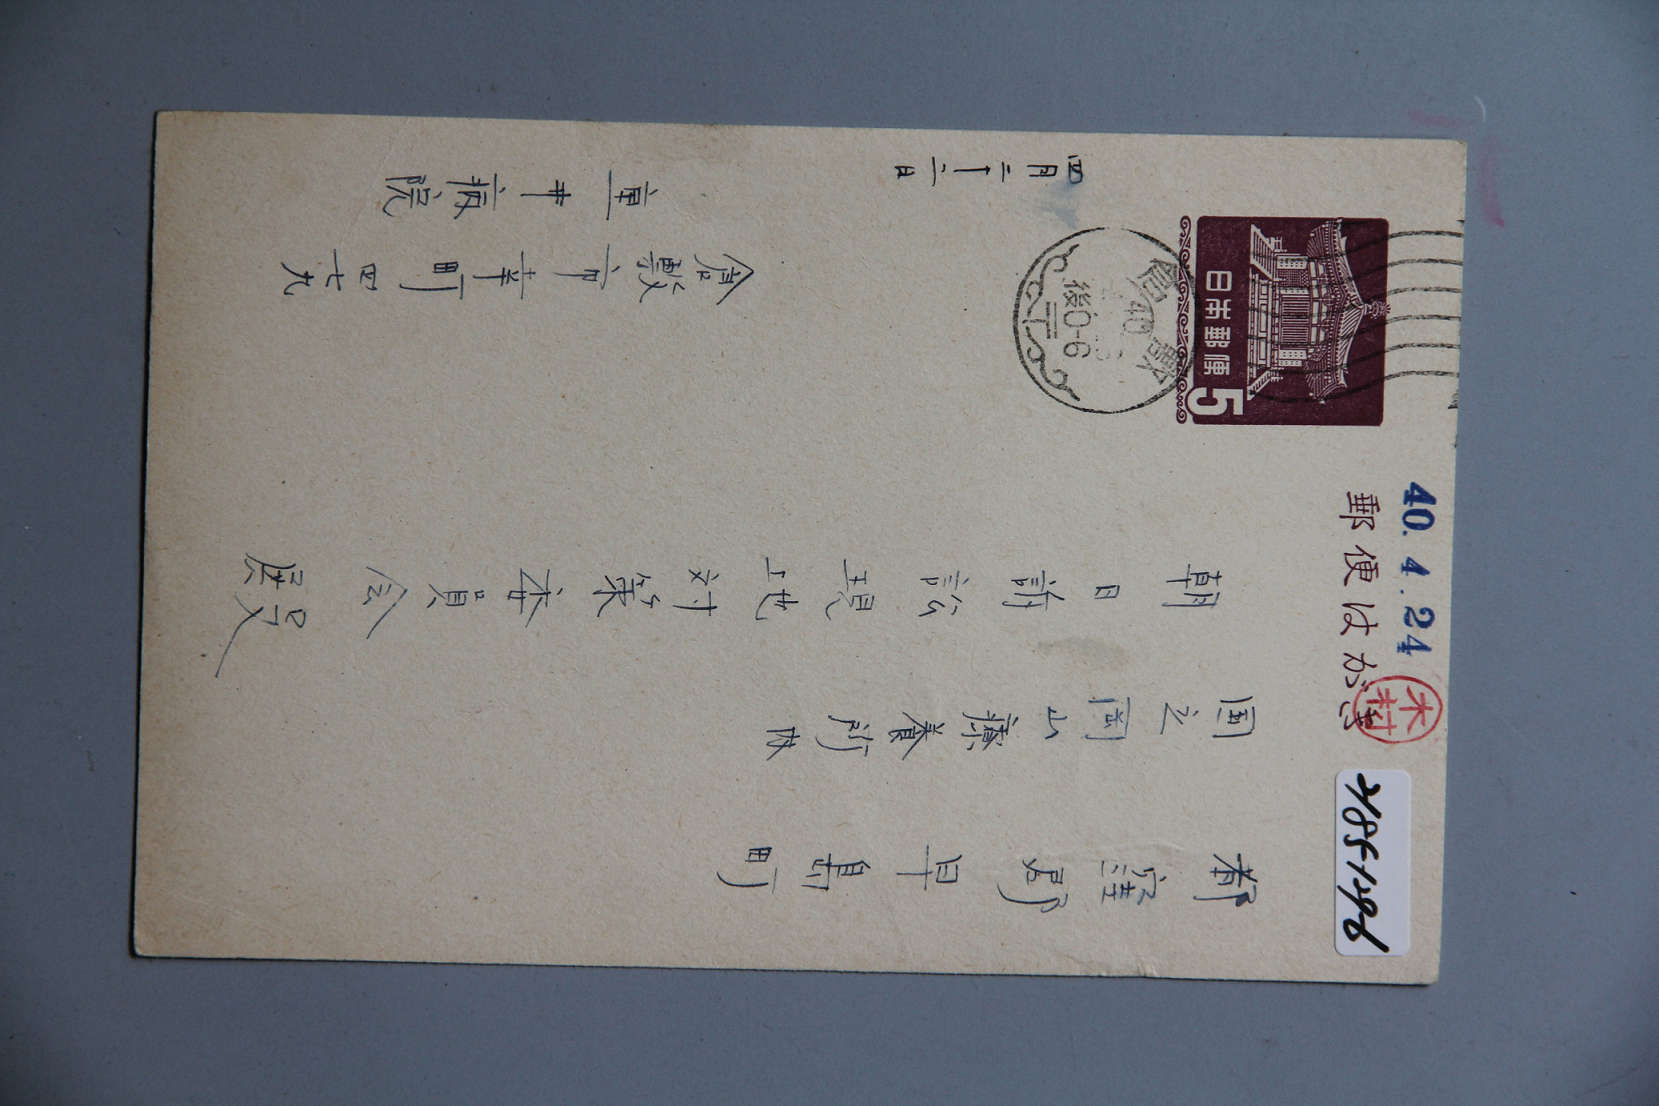 郵便はがき
40.4.24
木村
日本郵便
5
倉敷
40
後0-6
都窪郡早島町
国立岡山療養所内
朝日訴訟現地対策委員会
殿
四月二十二日
倉敷市幸町四七九
重井病院